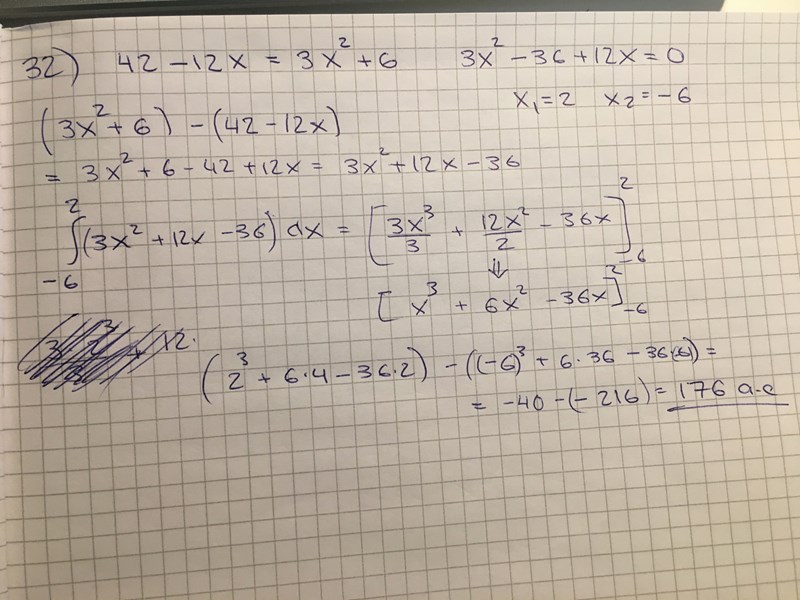 32) 42 − 12x = 3x² + 6 3x² − 36 + 12x = 0
x₁ = 2 x₂ = −6
(3x² + 6) − (42 − 12x)
= 3x² + 6 − 42 + 12x = 3x² + 12x − 36
∫₋₆² (3x² + 12x − 36) dx = [3x³/3 + 12x²/2 − 36x]₋₆²
⇓
[x³ + 6x² − 36x]₋₆²
(2³ + 6·4 − 36·2) − ((−6)³ + 6·36 − 36(6)) =
= −40 − (−216) = 176 a.e